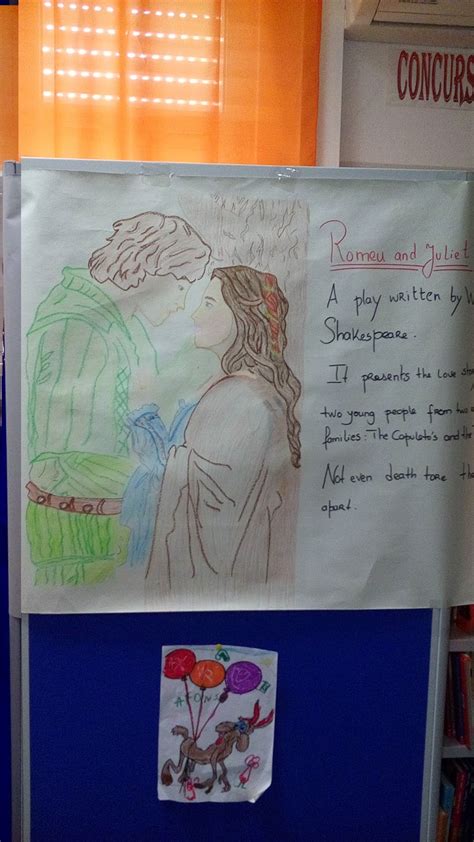 CONCURS
Romeu and Juliet
A play written by W
Shakespeare.
It presents the love stor
two young people from two
families: The Capuleto's and the
Not even death tore the
apart.
AFONSO